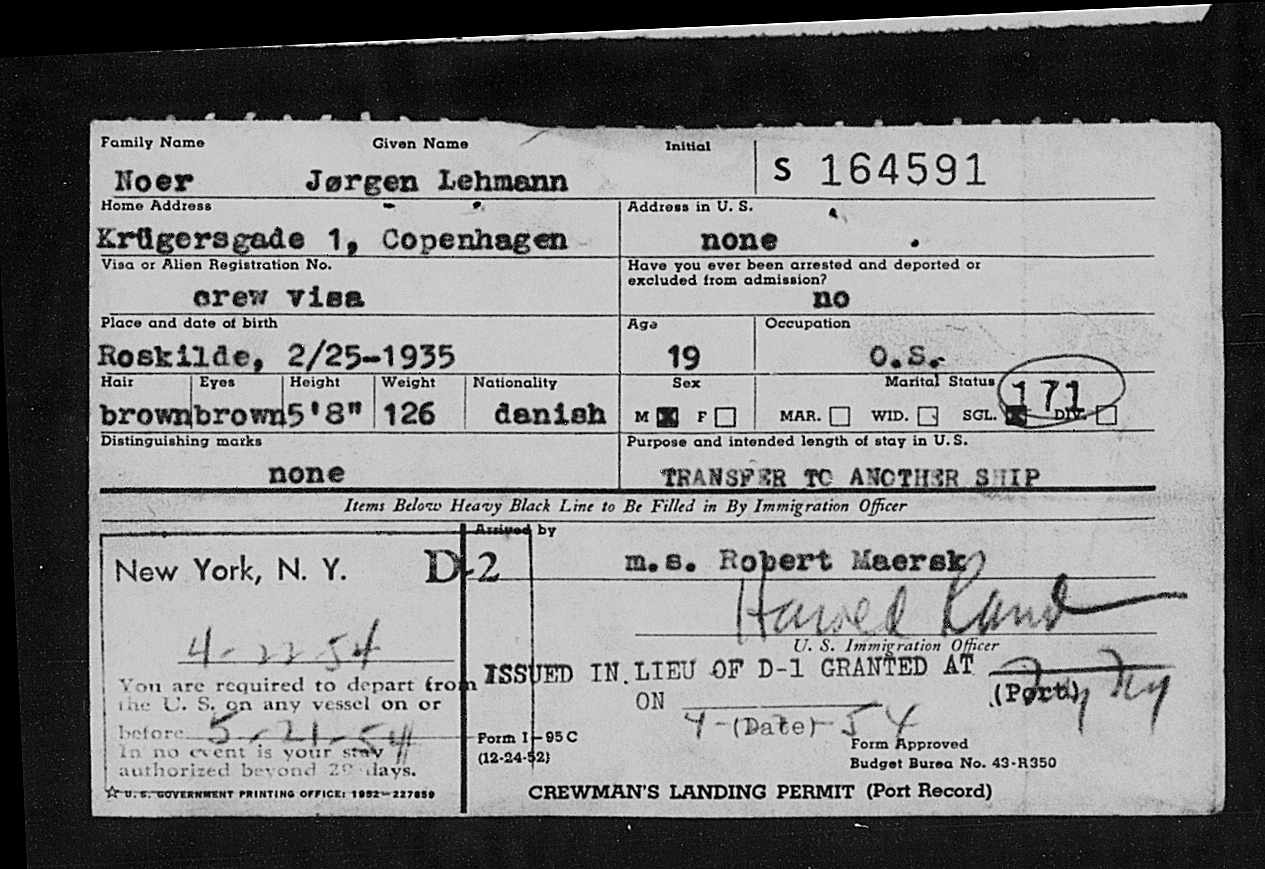 Family Name Given Name Initial
Noer Jørgen Lehmann S 164591
Home Address Address in U. S.
Krügersgade 1, Copenhagen none
Visa or Alien Registration No. Have you ever been arrested and deported or
excluded from admission?
crew visa no
Place and date of birth Age Occupation
Roskilde, 2/25-1935 19 O.S.
Hair Eyes Height Weight Nationality Sex Marital Status
171
brown brown 5'8" 126 danish M F MAR. WID. SGL. DIV.
Distinguishing marks Purpose and intended length of stay in U.S.
none TRANSFER TO ANOTHER SHIP
Items Below Heavy Black Line to Be Filled in By Immigration Officer
Arrived by
New York, N. Y. D-2 m.s. Robert Maersk
Harold
4-22-54 U. S. Immigration Officer
ISSUED IN LIEU OF D-1 GRANTED AT
You are required to depart from (Port)
the U. S. on any vessel on or ON
4- (Date) -54
before 5-21-54
Form I-95C Form Approved
In no event is your stay (12-24-52) Budget Burea No. 43-R350
authorized beyond 29 days.
☆ U. S. GOVERNMENT PRINTING OFFICE: 1952-227859 CREWMAN'S LANDING PERMIT (Port Record)